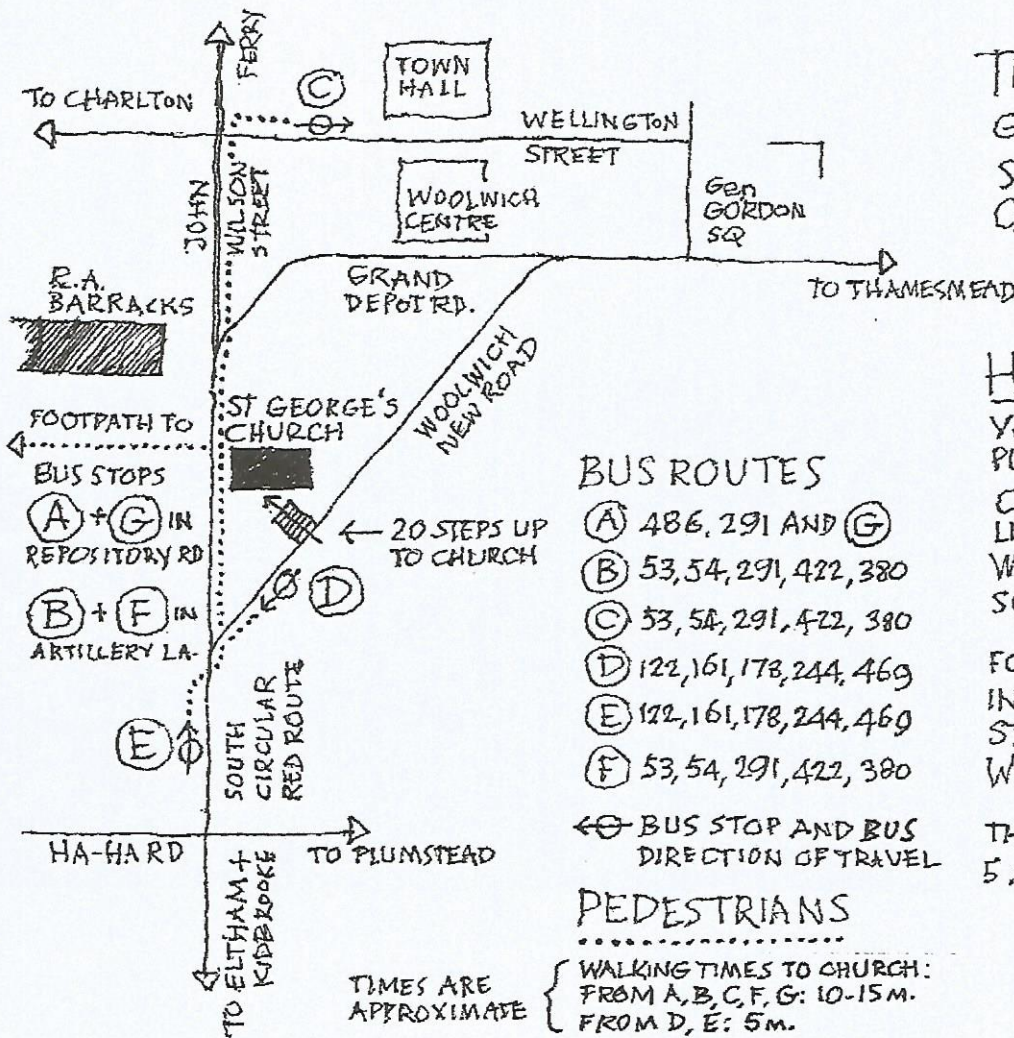 FERRY
TO CHARLTON
C
TOWN
HALL
WELLINGTON
STREET
JOHN
WILSON
STREET
WOOLWICH
CENTRE
Gen
GORDON
SQ
R.A.
BARRACKS
GRAND
DEPOT RD.
TO THAMESMEAD
WOOLWICH
NEW ROAD
FOOTPATH TO
ST GEORGE'S
CHURCH
BUS STOPS
A + G IN
REPOSITORY RD
B + F IN
ARTILLERY LA.
← 20 STEPS UP
TO CHURCH
D
E
SOUTH
CIRCULAR
RED ROUTE
HA-HA RD
TO PLUMSTEAD
TO ELTHAM +
KIDBROOKE
BUS ROUTES
A 486, 291 AND G
B 53, 54, 291, 422, 380
C 53, 54, 291, 422, 380
D 122, 161, 178, 244, 469
E 122, 161, 178, 244, 469
F 53, 54, 291, 422, 380
BUS STOP AND BUS
DIRECTION OF TRAVEL
PEDESTRIANS
TIMES ARE
APPROXIMATE
WALKING TIMES TO CHURCH:
FROM A, B, C, F, G: 10-15 M.
FROM D, E: 5 M.